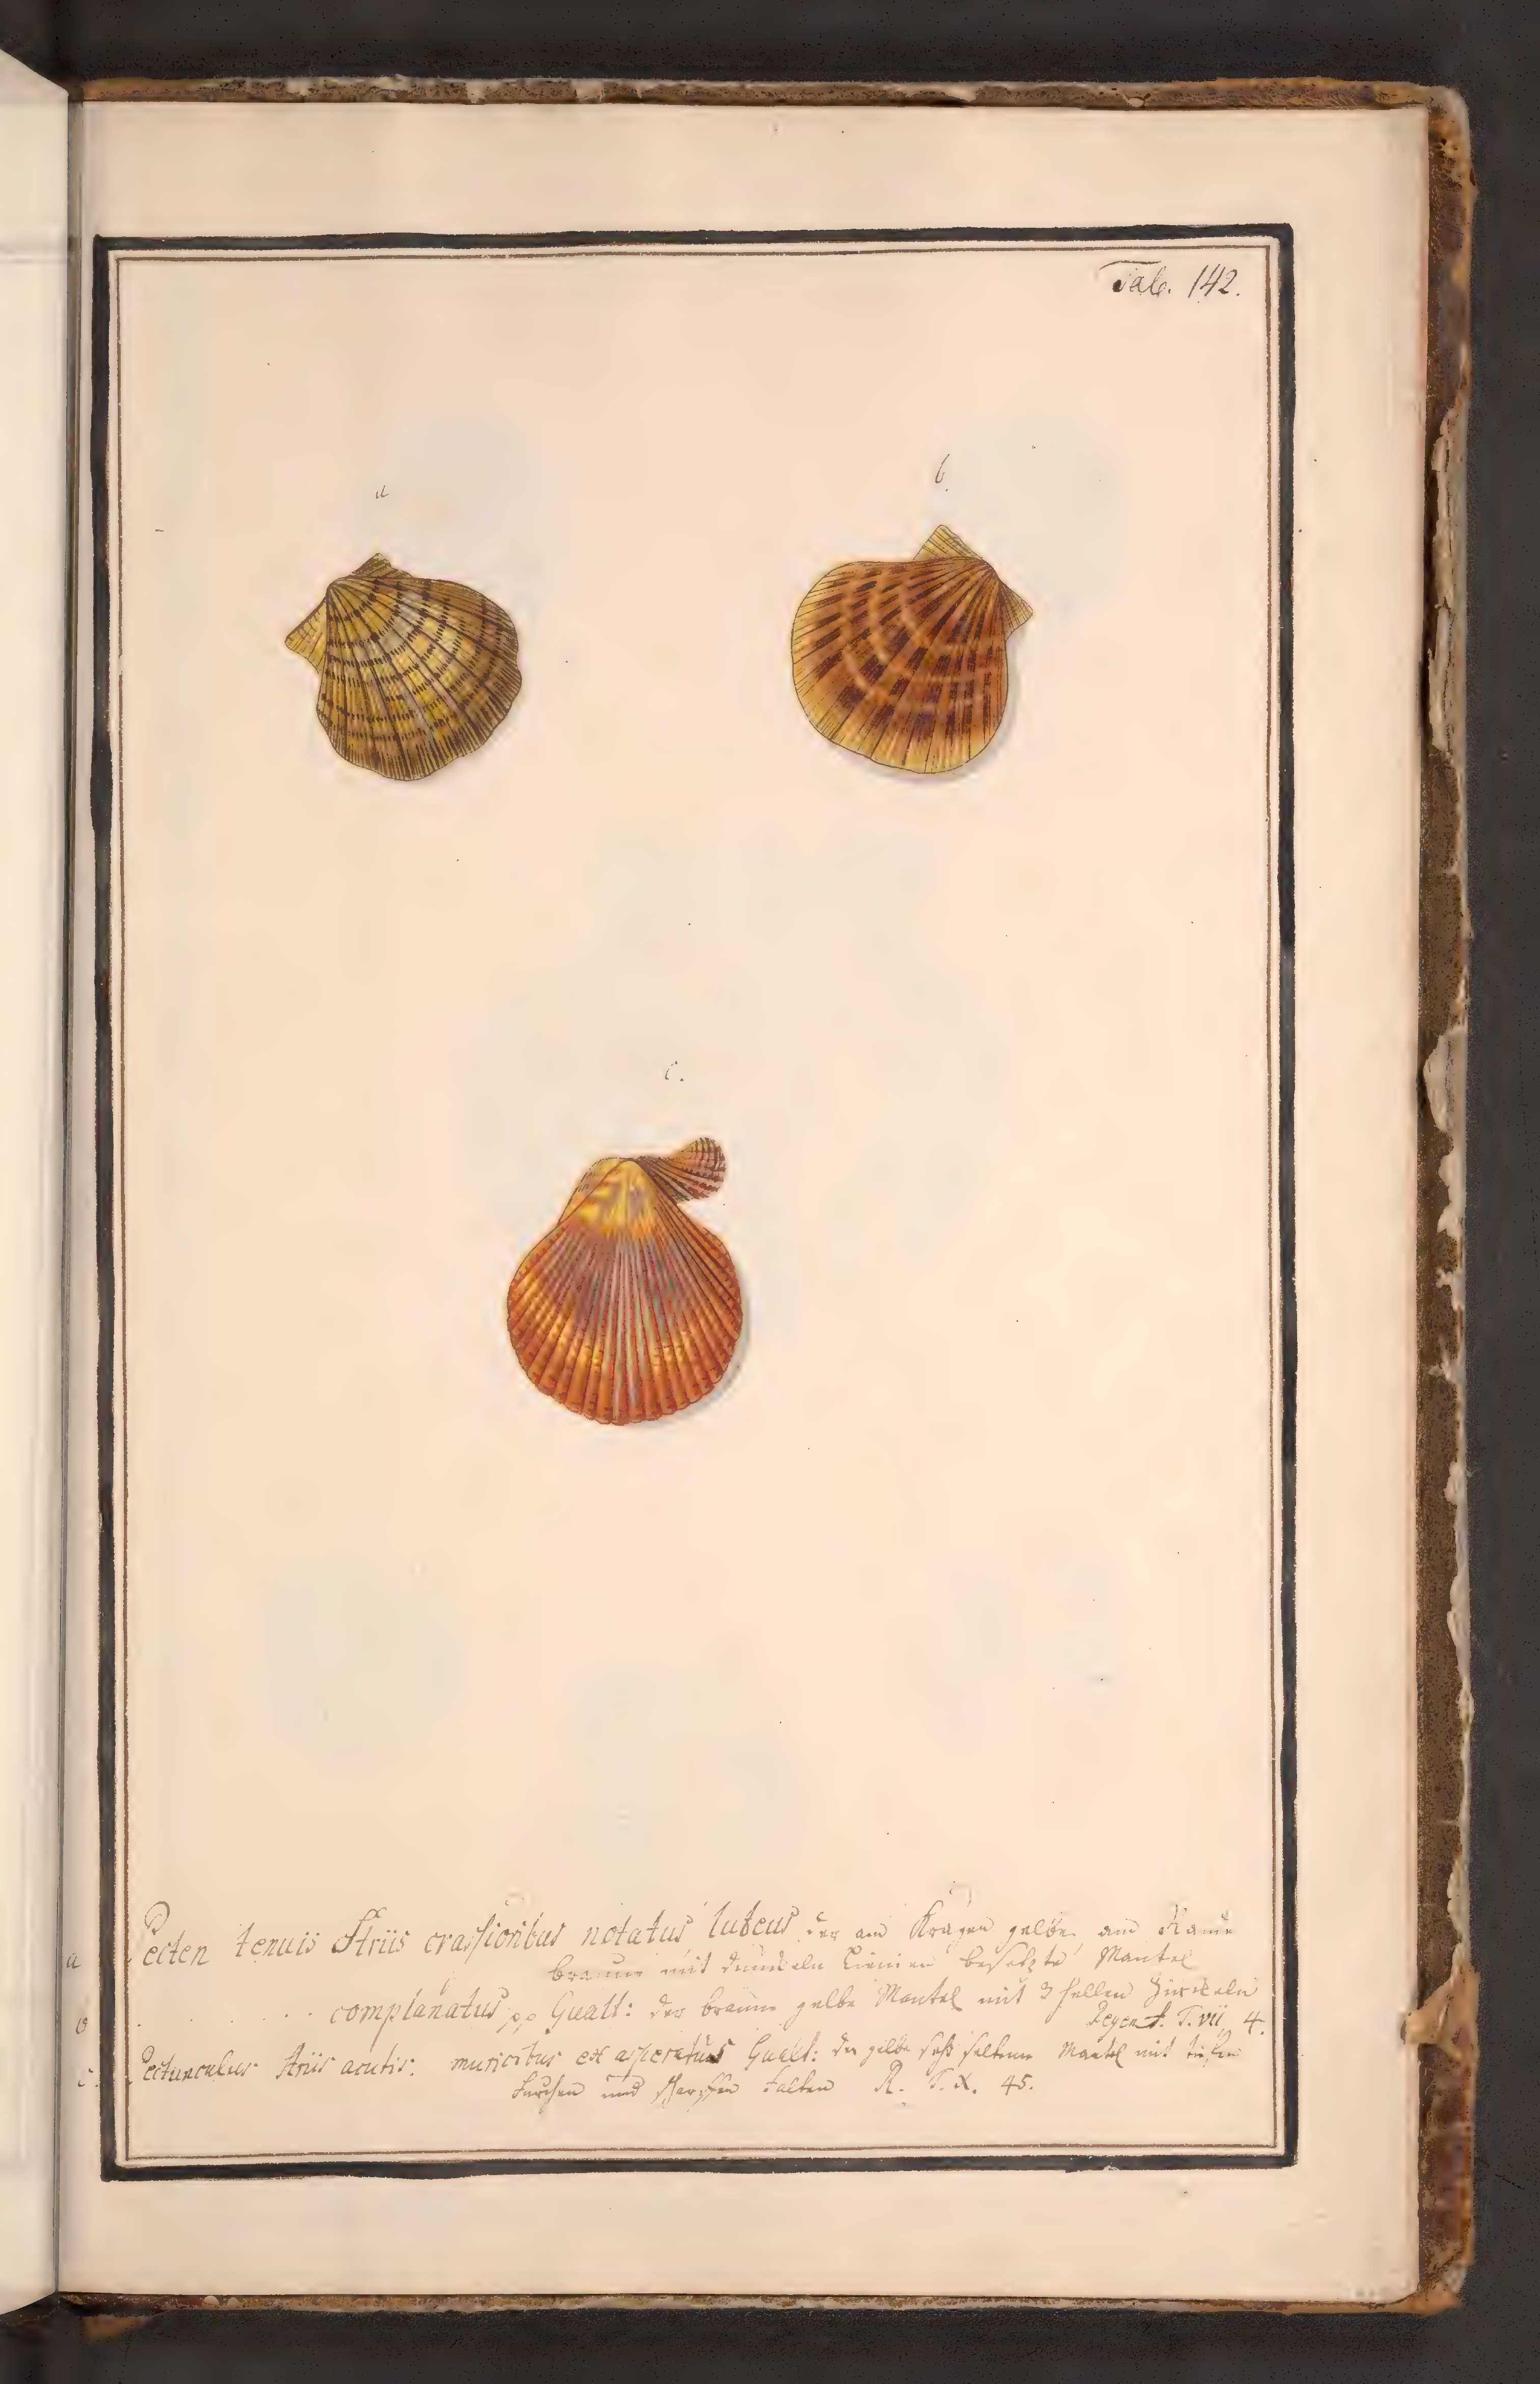 Tab. 142.
a
b.
c.
a Pecten tenuis Striis crassioribus notatus luteus der am Kragen gelbe, am Rande
braune mit dunckeln Linien besetzte Mantel
b . . . . complanatus pp Gualt: der braun gelbe Mantel mit 3 hellen Zirckeln
T. vii 4.
c. Pectunculus Striis acutis. muricatus et asperatus Gualt: der gelbe sehr seltene Mantel mit tiefen
Furchen und scharffen Falten R. T. X. 45.